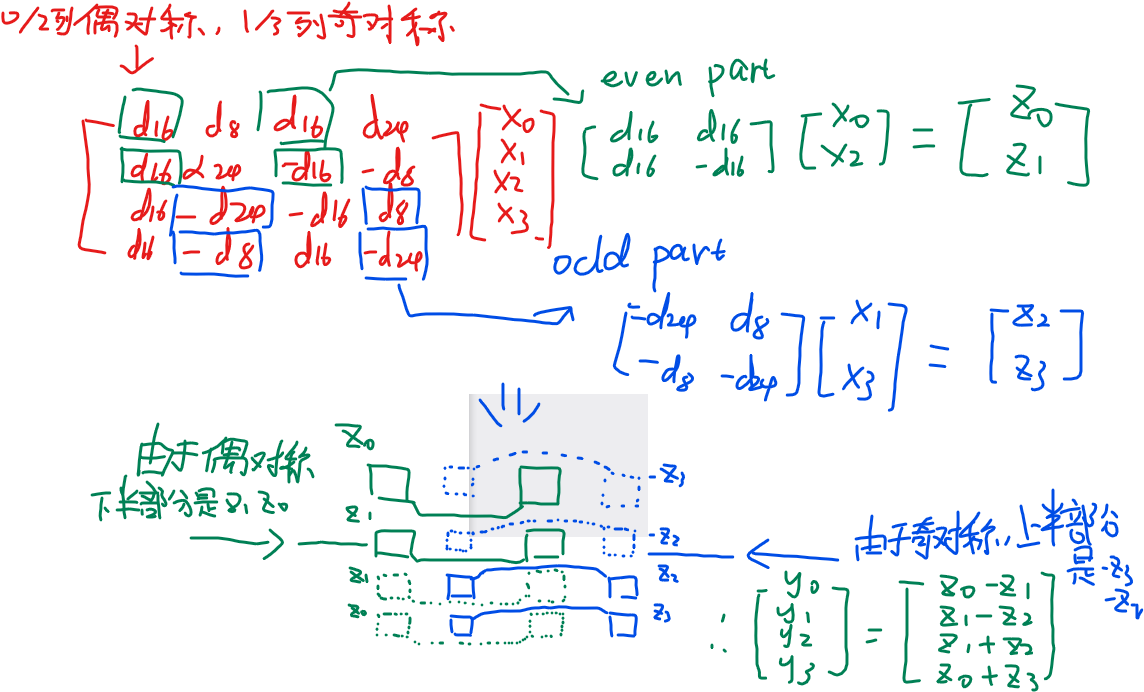 0/2列偶对称, 1/3列奇对称
d16 d8 d16 d24
d16 d24 -d16 -d8
d16 -d24 -d16 d8
d16 -d8 d16 -d24
x0
x1
x2
x3
even part
d16 d16
d16 -d16
x0
x2
=
z0
z1
odd part
-d24 d8
-d8 -d24
x1
x3
=
z2
z3
由于偶对称
下半部分是z1 z0
z0
z1
z1
z0
-z3
-z2
z2
z3
由于奇对称,上半部分
是-z3
-z2
∴
y0
y1
y2
y3
=
z0-z1
z1-z2
z1+z2
z0+z3